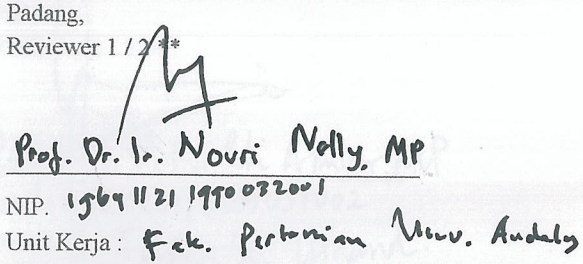 Padang,
Reviewer 1 / 2 **
Prof. Dr. Ir. Novri Nelly, MP
NIP. 19641121 1990032001
Unit Kerja : Fak. Pertanian Univ. Andalas